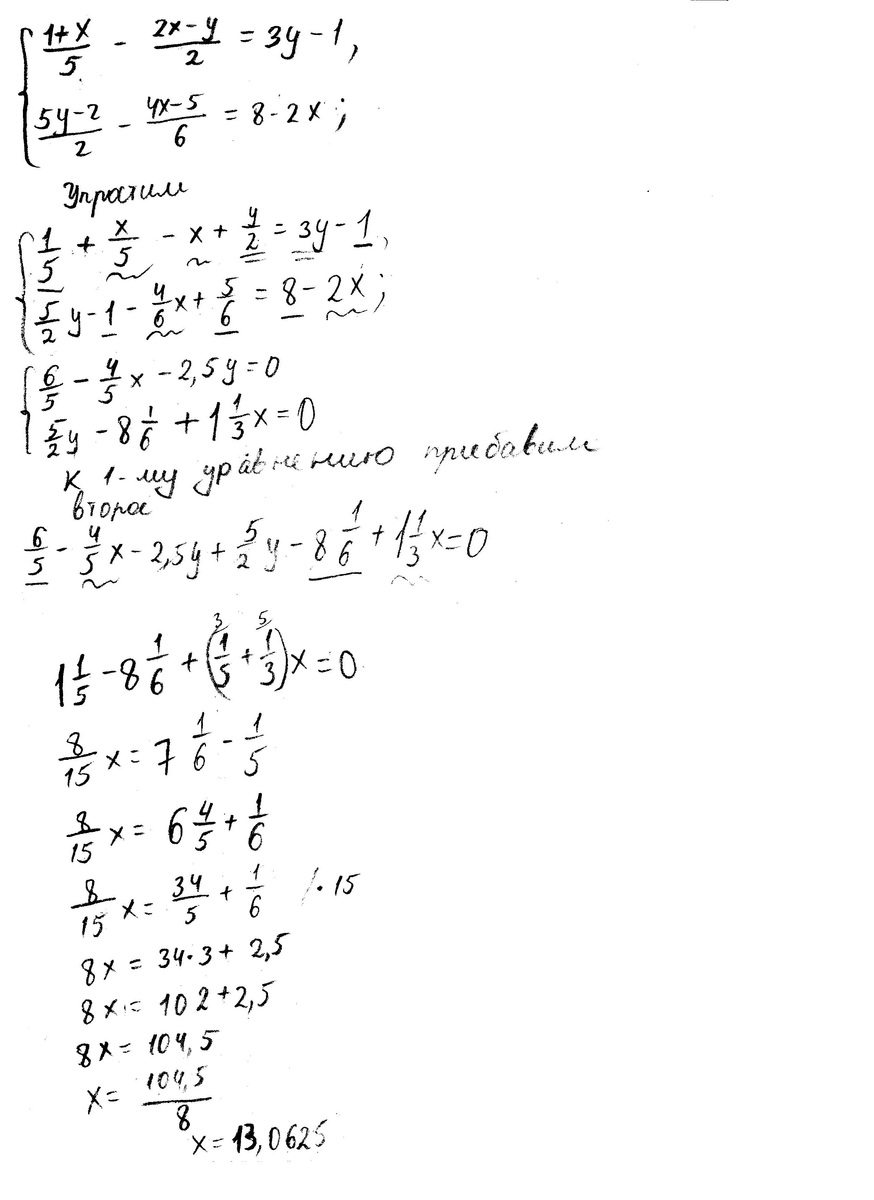 { (1+x)/5 - (2x-y)/2 = 3y-1,
(5y-2)/2 - (4x-5)/6 = 8-2x;
Упростим
{ 1/5 + x/5 - x + y/2 = 3y - 1,
5/2 y - 1 - 4/6 x + 5/6 = 8 - 2x;
{ 6/5 - 4/5 x - 2,5y = 0
5/2 y - 8 1/6 + 1 1/3 x = 0
К 1-му уравнению прибавим
второе
6/5 - 4/5 x - 2,5y + 5/2 y - 8 1/6 + 1 1/3 x = 0
3 5
1 1/5 - 8 1/6 + (1/5 + 1/3) x = 0
8/15 x = 7 1/6 - 1/5
8/15 x = 6 4/5 + 1/6
8/15 x = 34/5 + 1/6 /·15
8x = 34·3 + 2,5
8x = 102 + 2,5
8x = 104,5
x = 104,5/8
x = 13,0625